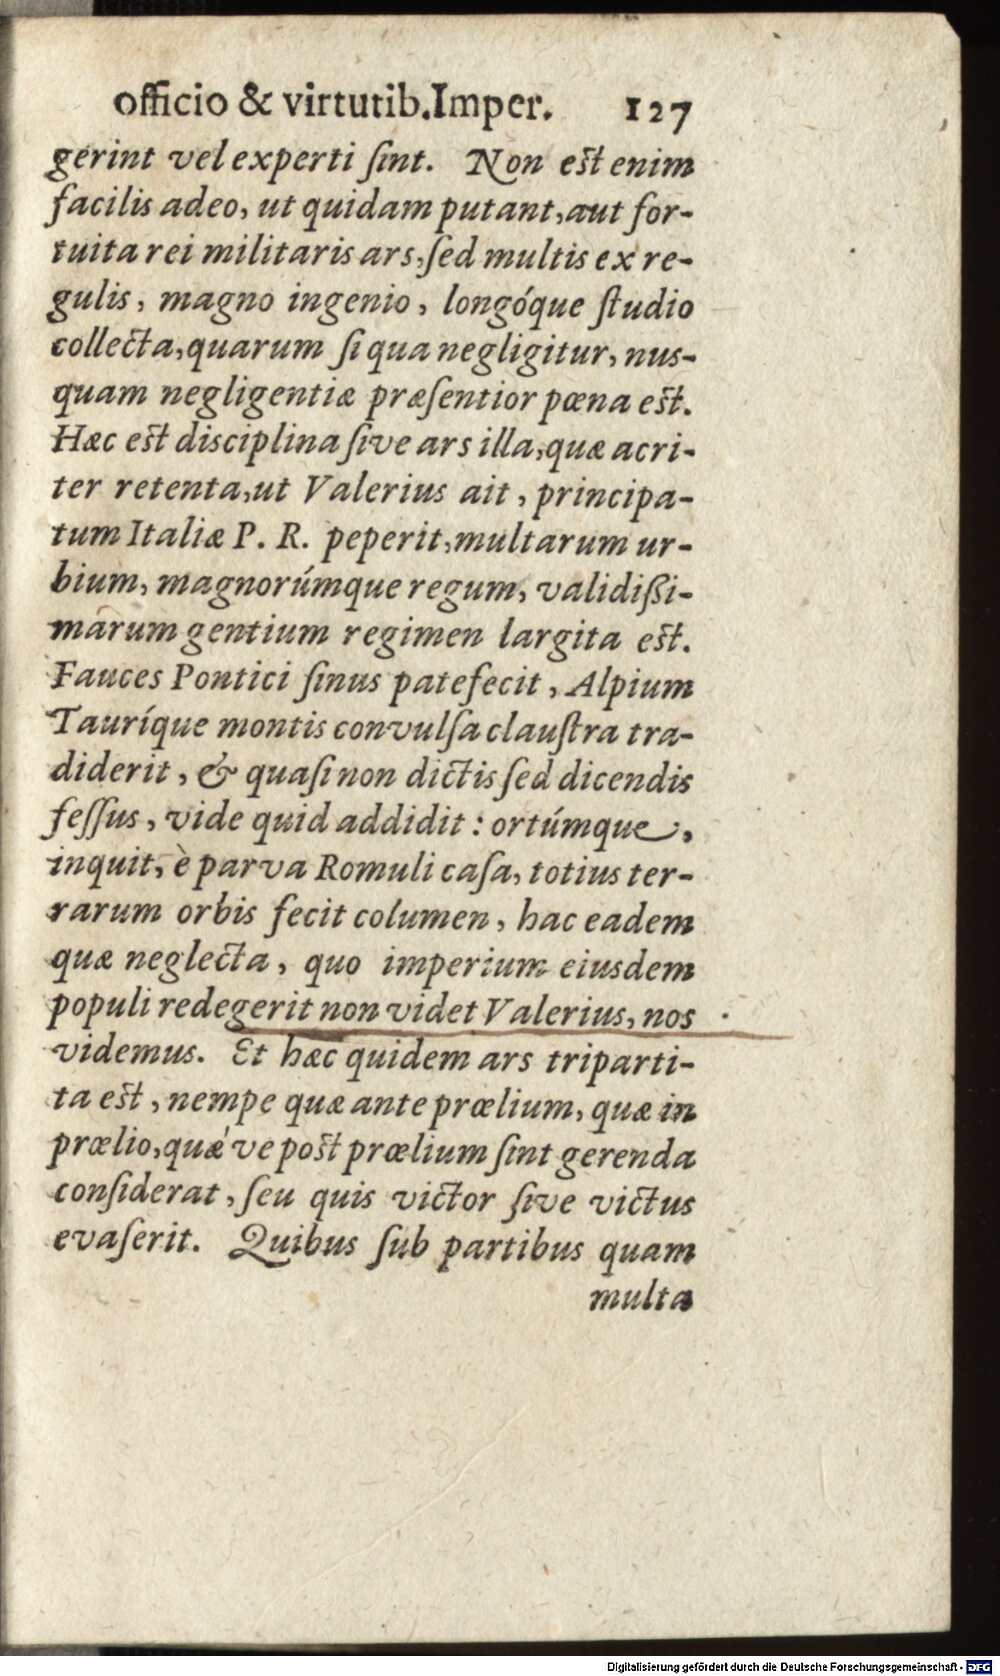 officio & virtutib. Imper. 127
gerint vel experti ſint. Non est enim
facilis adeo, ut quidam putant, aut for-
tuita rei militaris ars, ſed multis ex re-
gulis, magno ingenio, longóque ſtudio
collecta, quarum ſi qua negligitur, nus-
quam negligentiæ præſentior pœna est.
Hæc est disciplina ſive ars illa, quæ acri-
ter retenta, ut Valerius ait, principa-
tum Italiæ P. R. peperit, multarum ur-
bium, magnorúmque regum, validiſſi-
marum gentium regimen largita est.
Fauces Pontici ſinus patefecit, Alpium
Tauríque montis convulſa clauſtra tra-
diderit, & quaſi non dictis ſed dicendis
feſſus, vide quid addidit: ortúmque,
inquit, è parva Romuli caſa, totius ter-
rarum orbis fecit columen, hac eadem
quæ neglecta, quo imperium eiusdem
populi redegerit non videt Valerius, nos
videmus. Et hæc quidem ars triparti-
ta est, nempe quæ ante prœlium, quæ in
prœlio, quæ've post prœlium ſint gerenda
conſiderat, ſeu quis victor ſive victus
evaſerit. Quibus ſub partibus quam
multa
Digitalisierung gefördert durch die Deutsche Forschungsgemeinschaft - DFG